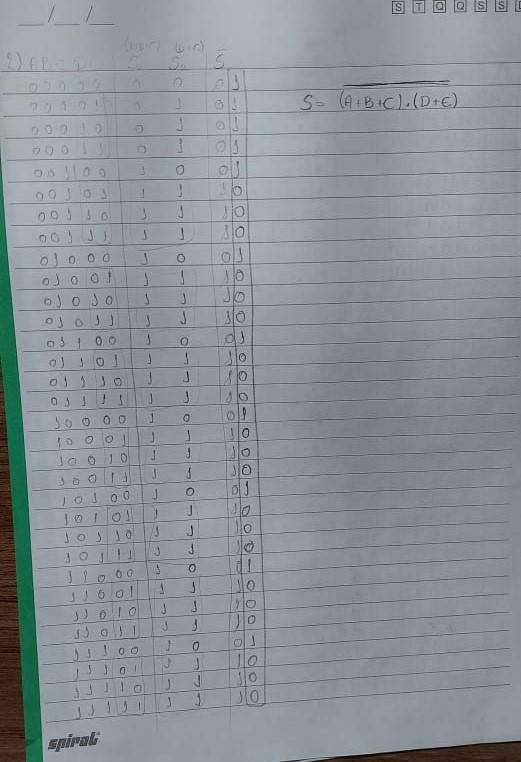 __/__/__ S T Q Q S S
2) A B C D E (A+B+C) (D+E) S
S = (A+B+C).(D+E)
0 0 0 0 0 0 0 0 1
0 0 0 0 1 0 1 0 1
0 0 0 1 0 0 1 0 1
0 0 0 1 1 0 1 0 1
0 0 1 0 0 1 0 0 1
0 0 1 0 1 1 1 1 0
0 0 1 1 0 1 1 1 0
0 0 1 1 1 1 1 1 0
0 1 0 0 0 1 0 0 1
0 1 0 0 1 1 1 1 0
0 1 0 1 0 1 1 1 0
0 1 0 1 1 1 1 1 0
0 1 1 0 0 1 0 0 1
0 1 1 0 1 1 1 1 0
0 1 1 1 0 1 1 1 0
0 1 1 1 1 1 1 1 0
1 0 0 0 0 1 0 0 1
1 0 0 0 1 1 1 1 0
1 0 0 1 0 1 1 1 0
1 0 0 1 1 1 1 1 0
1 0 1 0 0 1 0 0 1
1 0 1 0 1 1 1 1 0
1 0 1 1 0 1 1 1 0
1 0 1 1 1 1 1 1 0
1 1 0 0 0 1 0 0 1
1 1 0 0 1 1 1 1 0
1 1 0 1 0 1 1 1 0
1 1 0 1 1 1 1 1 0
1 1 1 0 0 1 0 0 1
1 1 1 0 1 1 1 1 0
1 1 1 1 0 1 1 1 0
1 1 1 1 1 1 1 1 0
spiral